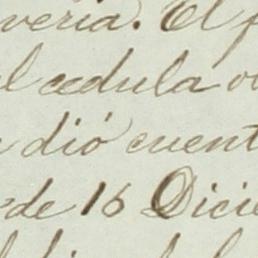 veria. El f
l cedula o
dió cuent
de 16 Dicie